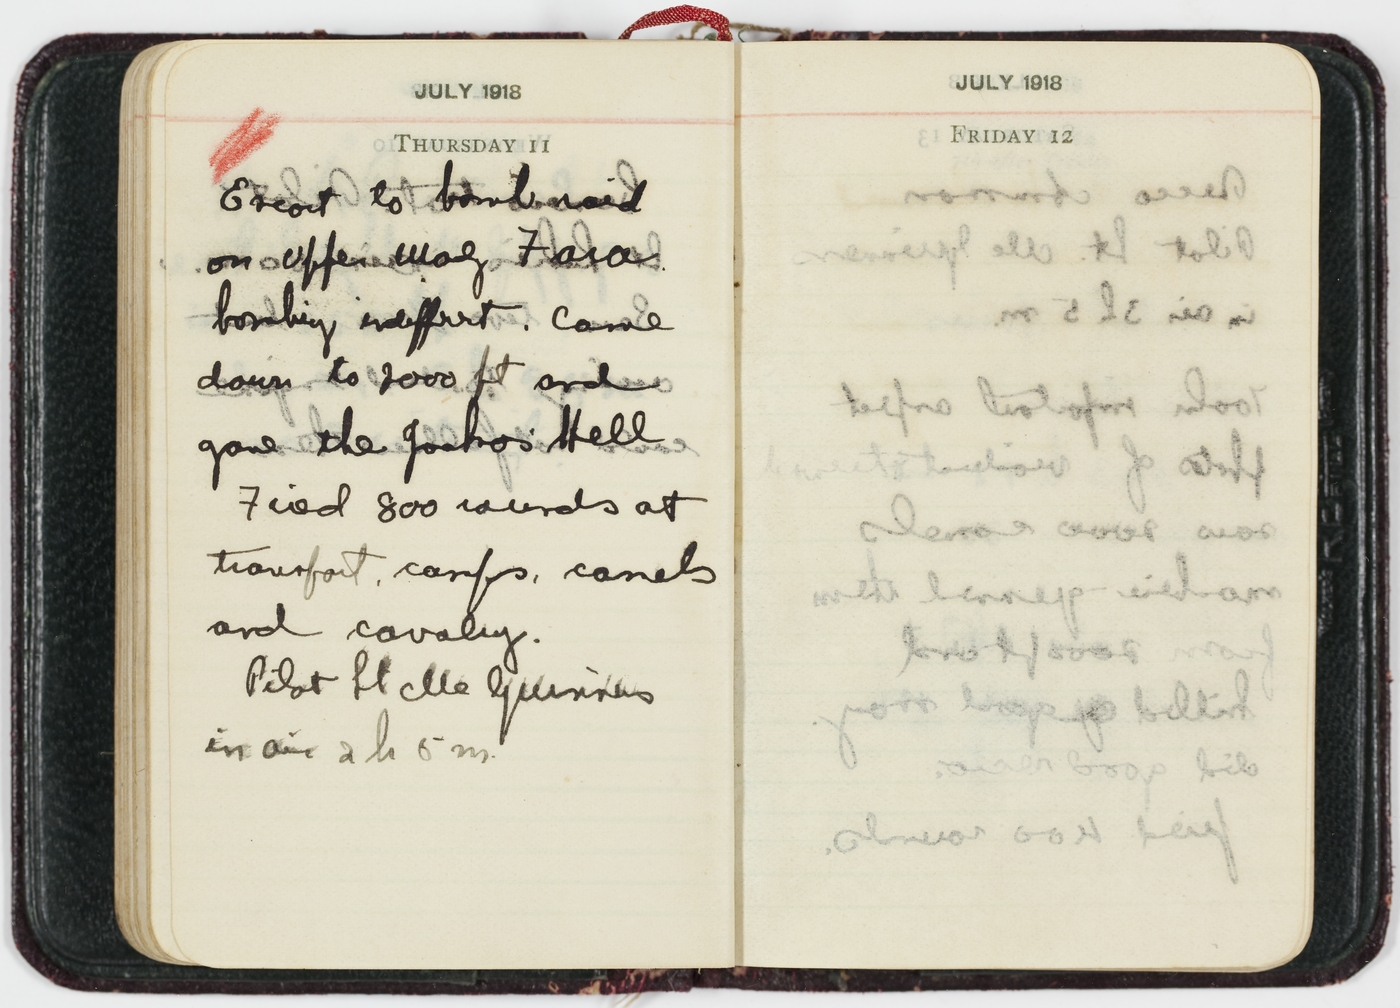 JULY 1918
THURSDAY 11
Escort to bomb raid
on
bombing indiffert. Came
down to 2000 ft and
gave the Jackos Hell
Fired 800 rounds at
transport, camps, camels
and cavalry.
Pilot Lt McGuinness
in air 2 h 5 m.
JULY 1918
FRIDAY 12